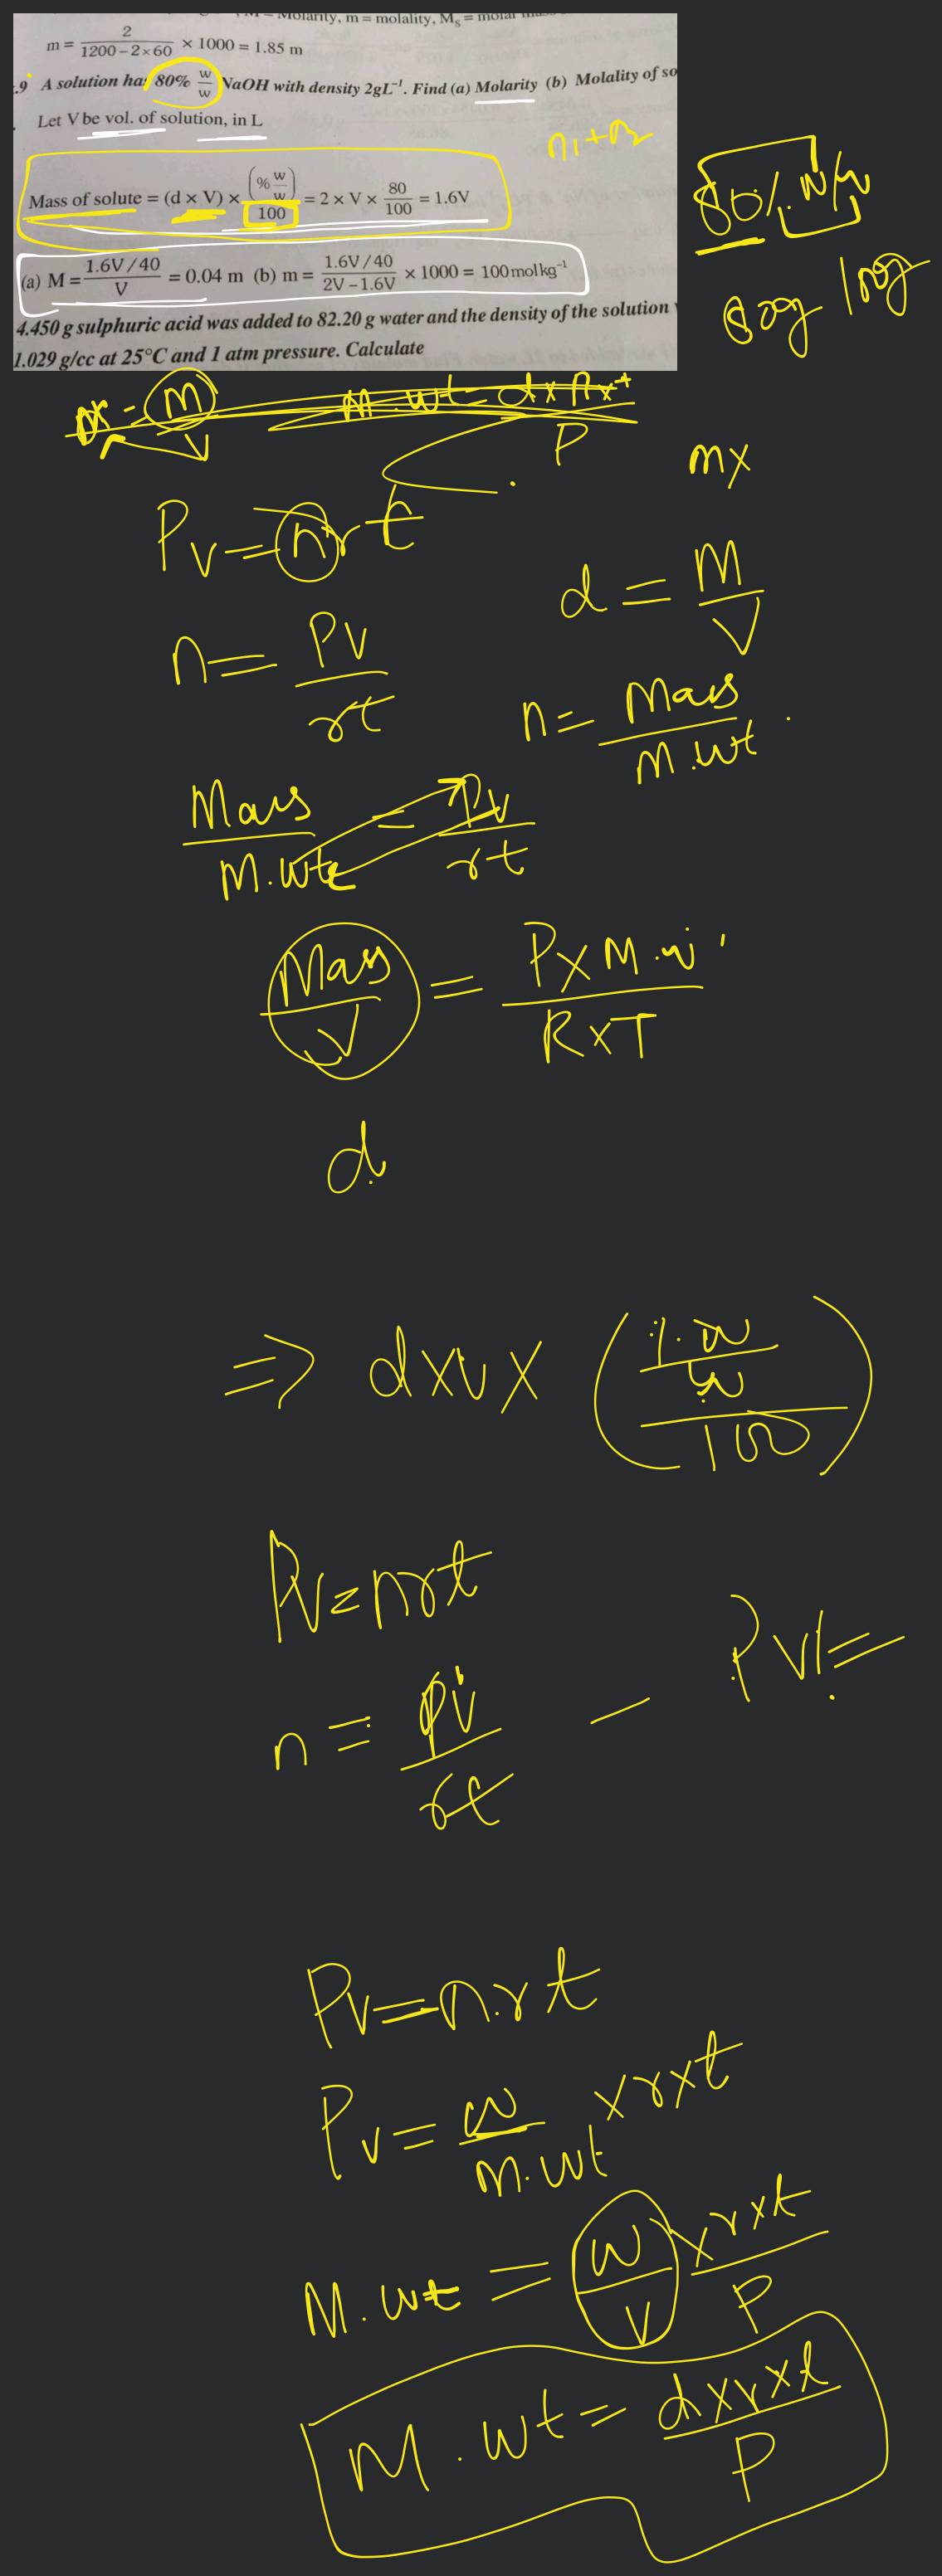 Molarity, m = molality, Ms = molar
m = 2 / (1200 – 2×60) × 1000 = 1.85 m
.9 A solution has 80% w/w NaOH with density 2gL⁻¹. Find (a) Molarity (b) Molality of so
Let V be vol. of solution, in L
n1+n2
Mass of solute = (d × V) × (% w/w) / 100 = 2 × V × 80/100 = 1.6V
80% w/w
(a) M = (1.6V/40) / V = 0.04 m (b) m = (1.6V/40) / (2V – 1.6V) × 1000 = 100 mol kg⁻¹
80g 100g
4.450 g sulphuric acid was added to 82.20 g water and the density of the solution
1.029 g/cc at 25°C and 1 atm pressure. Calculate
= M / V
M.wt = d×R×t / P
mx
Pv = nrt
d = M / V
n = Pv / rt
n = Mass / M.wt
Mass / M.wt = Pv / rt
Mass / V = P×M.w / R×T
d
⇒ d×v× (% w/w / 100)
Pv = nrt
Pv =
n = Pv / rt –
Pv = n.rt
Pv = w / M.wt × r×t
M.wt = w / V × r×t / P
M.wt = d×r×t / P